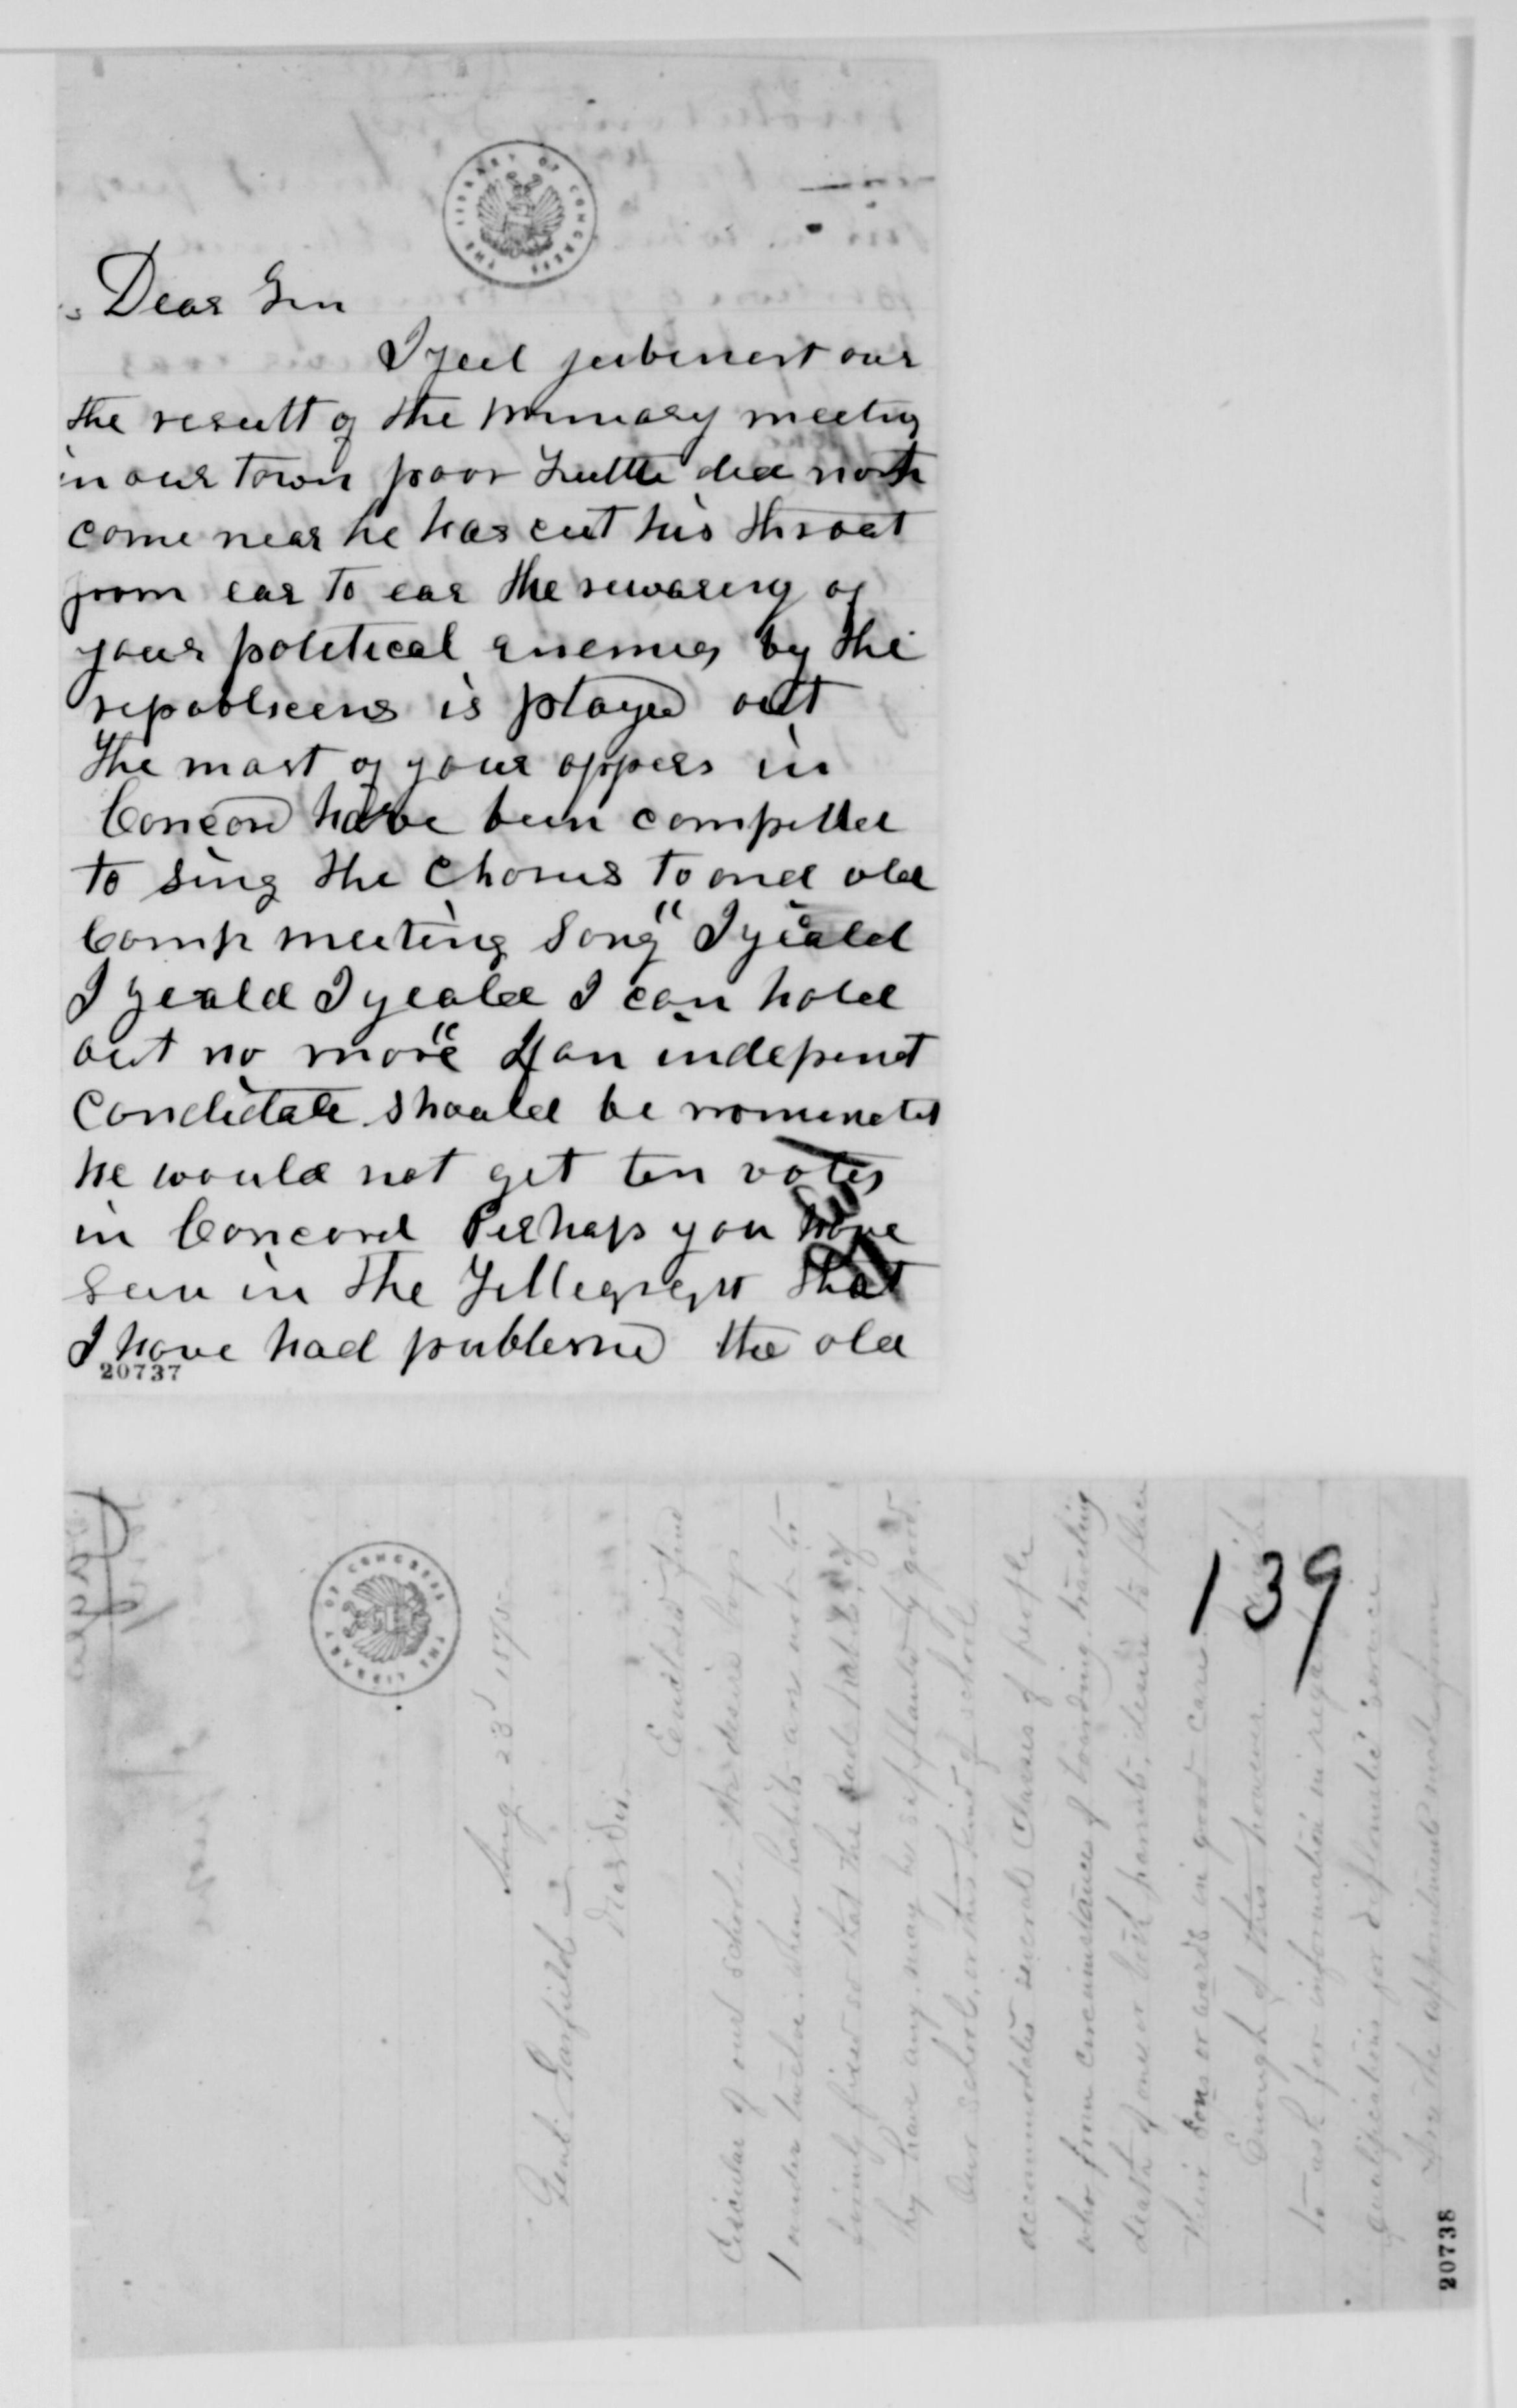 THE LIBRARY OF CONGRESS
Dear Gen
I feel jubenert our
the result of the primary meeting
in our town poor Tuttle did not
come near he has cut his throat
from ear to ear the rewaring of
your political enemies by the
republicens is played out
The most of your oppers in
Concord have been compelled
to sing the Chorus to and old
Camp meeting Song " I yieald
I yeald I yeald I can hold
out no more " If an indepent
Candidate should be nominated
he would not get ten votes
in Concord Perhaps you have
seen in the Tellegreph that
I have had publisned the old
20737
139
THE LIBRARY OF CONGRESS
Aug. 23d 1875
Genl. Garfield
Dear Sir.
Enclosed find
Circular of our school. We desire boys
under twelve when habits are not so
firmly fixed so that the bad habits, if
they have any may be supplanted by good.
Our school, or this kind of school
accommodates several Classes of people
who from circumstances of boarding, traveling
death of one or both parents, desire to place
their sons or wards in good care.
Enough of this however.
to ask for information in regard
qualifications for diplomatic service
Are the appointments made from
20738